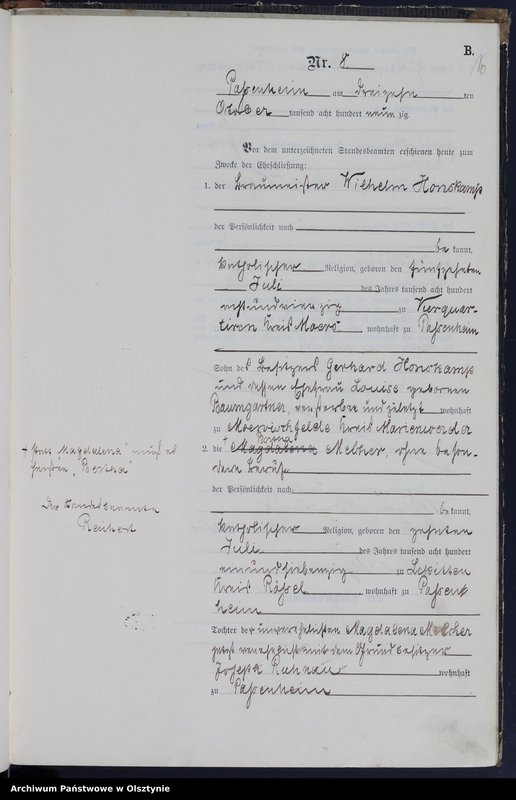 B.
Nr. 8
Passenheim am dreizehn ten
October tausend acht hundert neun zig.
Vor dem unterzeichneten Standesbeamten erschienen heute zum
Zwecke der Eheschließung:
1. der Braumeister Wilhelm Honskamp
der Persönlichkeit nach
be kannt,
katholischer Religion, geboren den fünfzehnten
Juli des Jahres tausend acht hundert
zu Vierquar-
tieren Kreis Moers wohnhaft zu Passenheim
Sohn des Besitzers Gerhard Honskamp
und dessen Ehefrau Louise geborenen
Baumgartner, verstorben und zuletzt wohnhaft
zu Kreis Marienwerder
Bertha
2. die Magdalena Melcher, ohne beson-
dern Beruf
der Persönlichkeit nach
be kannt,
katholischer Religion, geboren den zehnten
Juli des Jahres tausend acht hundert
einundsiebenzig zu Lekitten
Kreis Rössel wohnhaft zu Passen-
heim
Tochter der unverehelichten Magdalena Melcher
jetzt verehelicht mit dem Grundbesitzer
Joseph Ruhnau wohnhaft
zu Passenheim
statt "Magdalena" muß es
heißen "Bertha"
Der Standesbeamte
Archiwum Państwowe w Olsztynie